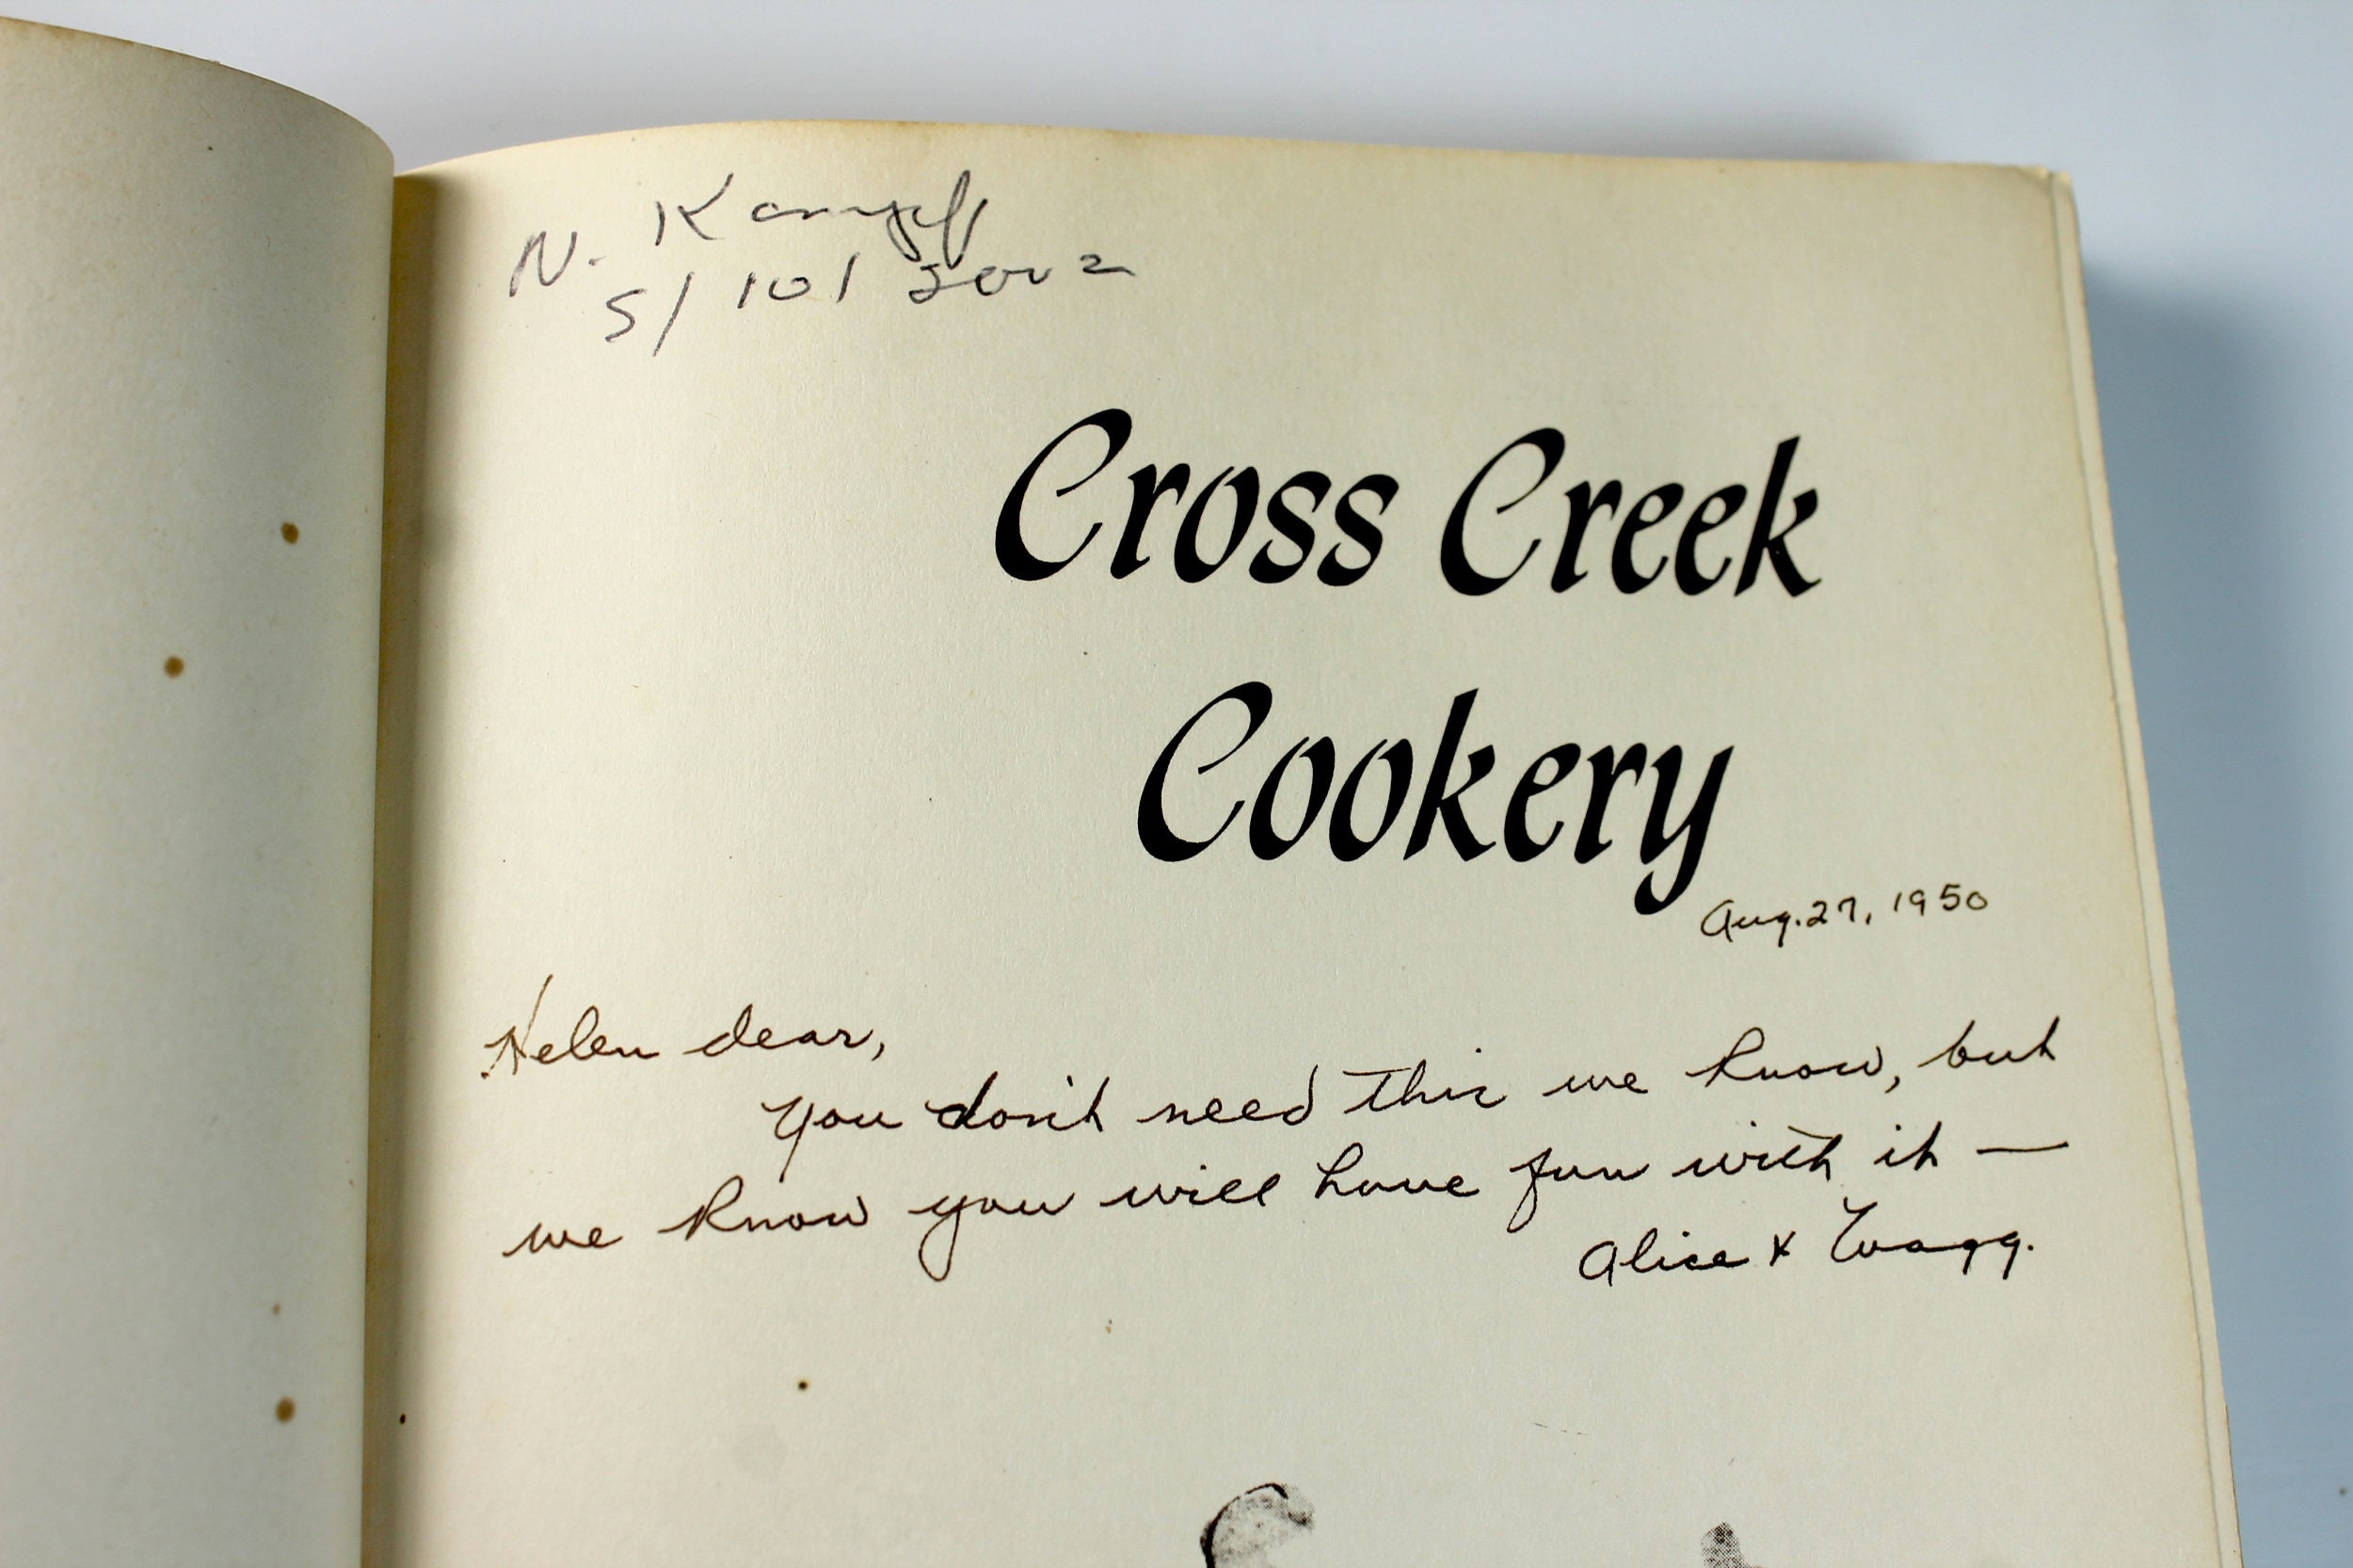 N. Kampf
5/10/2002
Cross Creek
Cookery
Aug. 27, 1950
Helen dear,
You don't need this we know, but
we know you will have fun with it —
Alice &